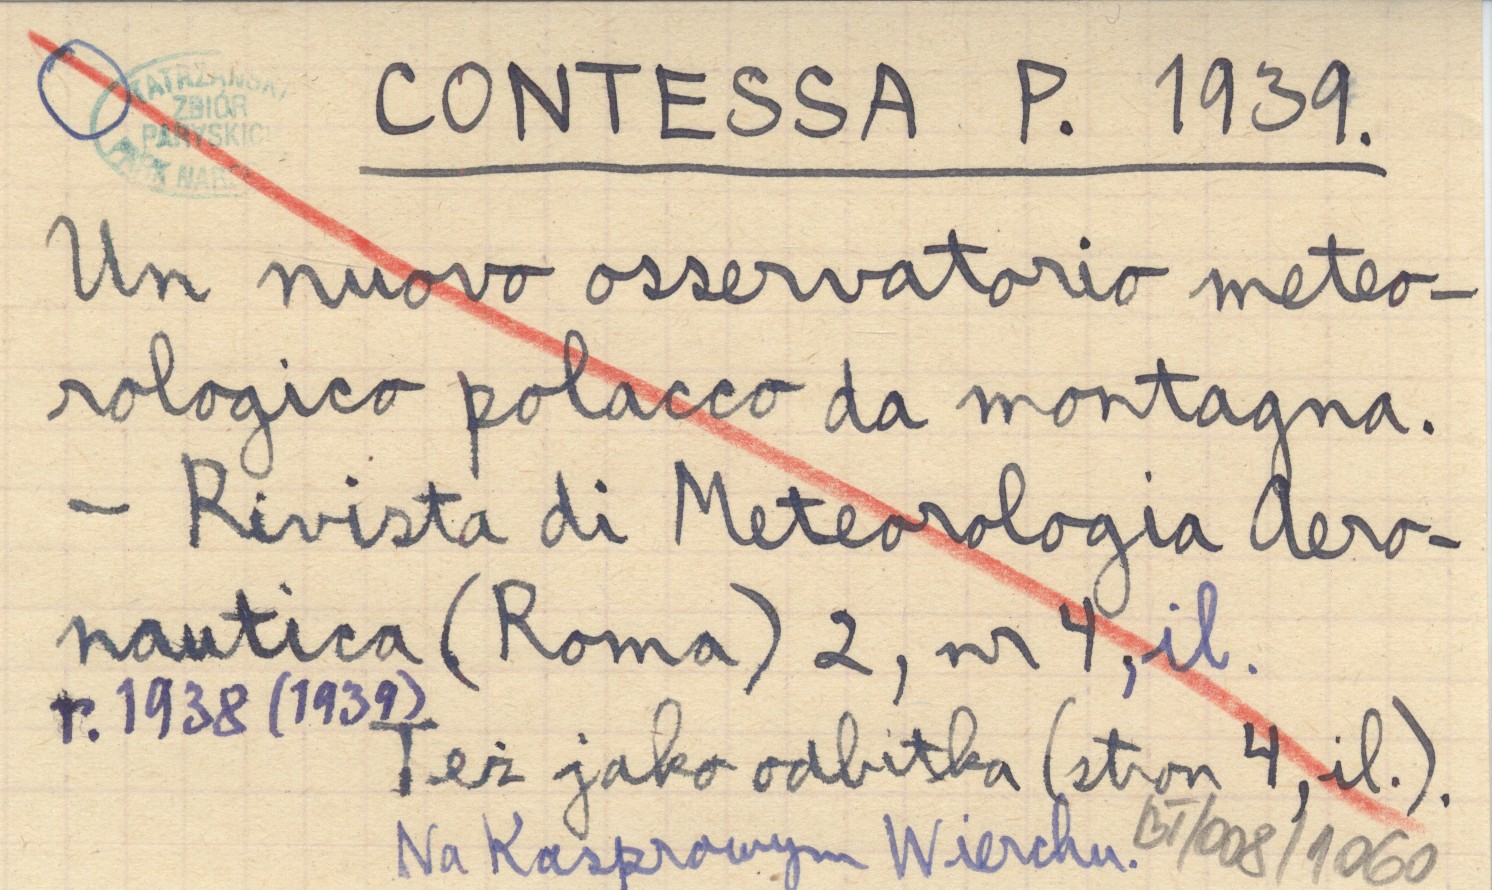 TATRZAŃSKI
ZBIÓR
PARYSKICH
CONTESSA P. 1939.
Un nuovo osservatorio meteo-
rologico polacco da montagna.
- Rivista di Meteorologia Aero-
nautica (Roma) 2, nr 4, il.
r. 1938 (1939)
Też jako odbitka (stron 4, il.).
Na Kasprowym Wierchu.
BT/008/1060